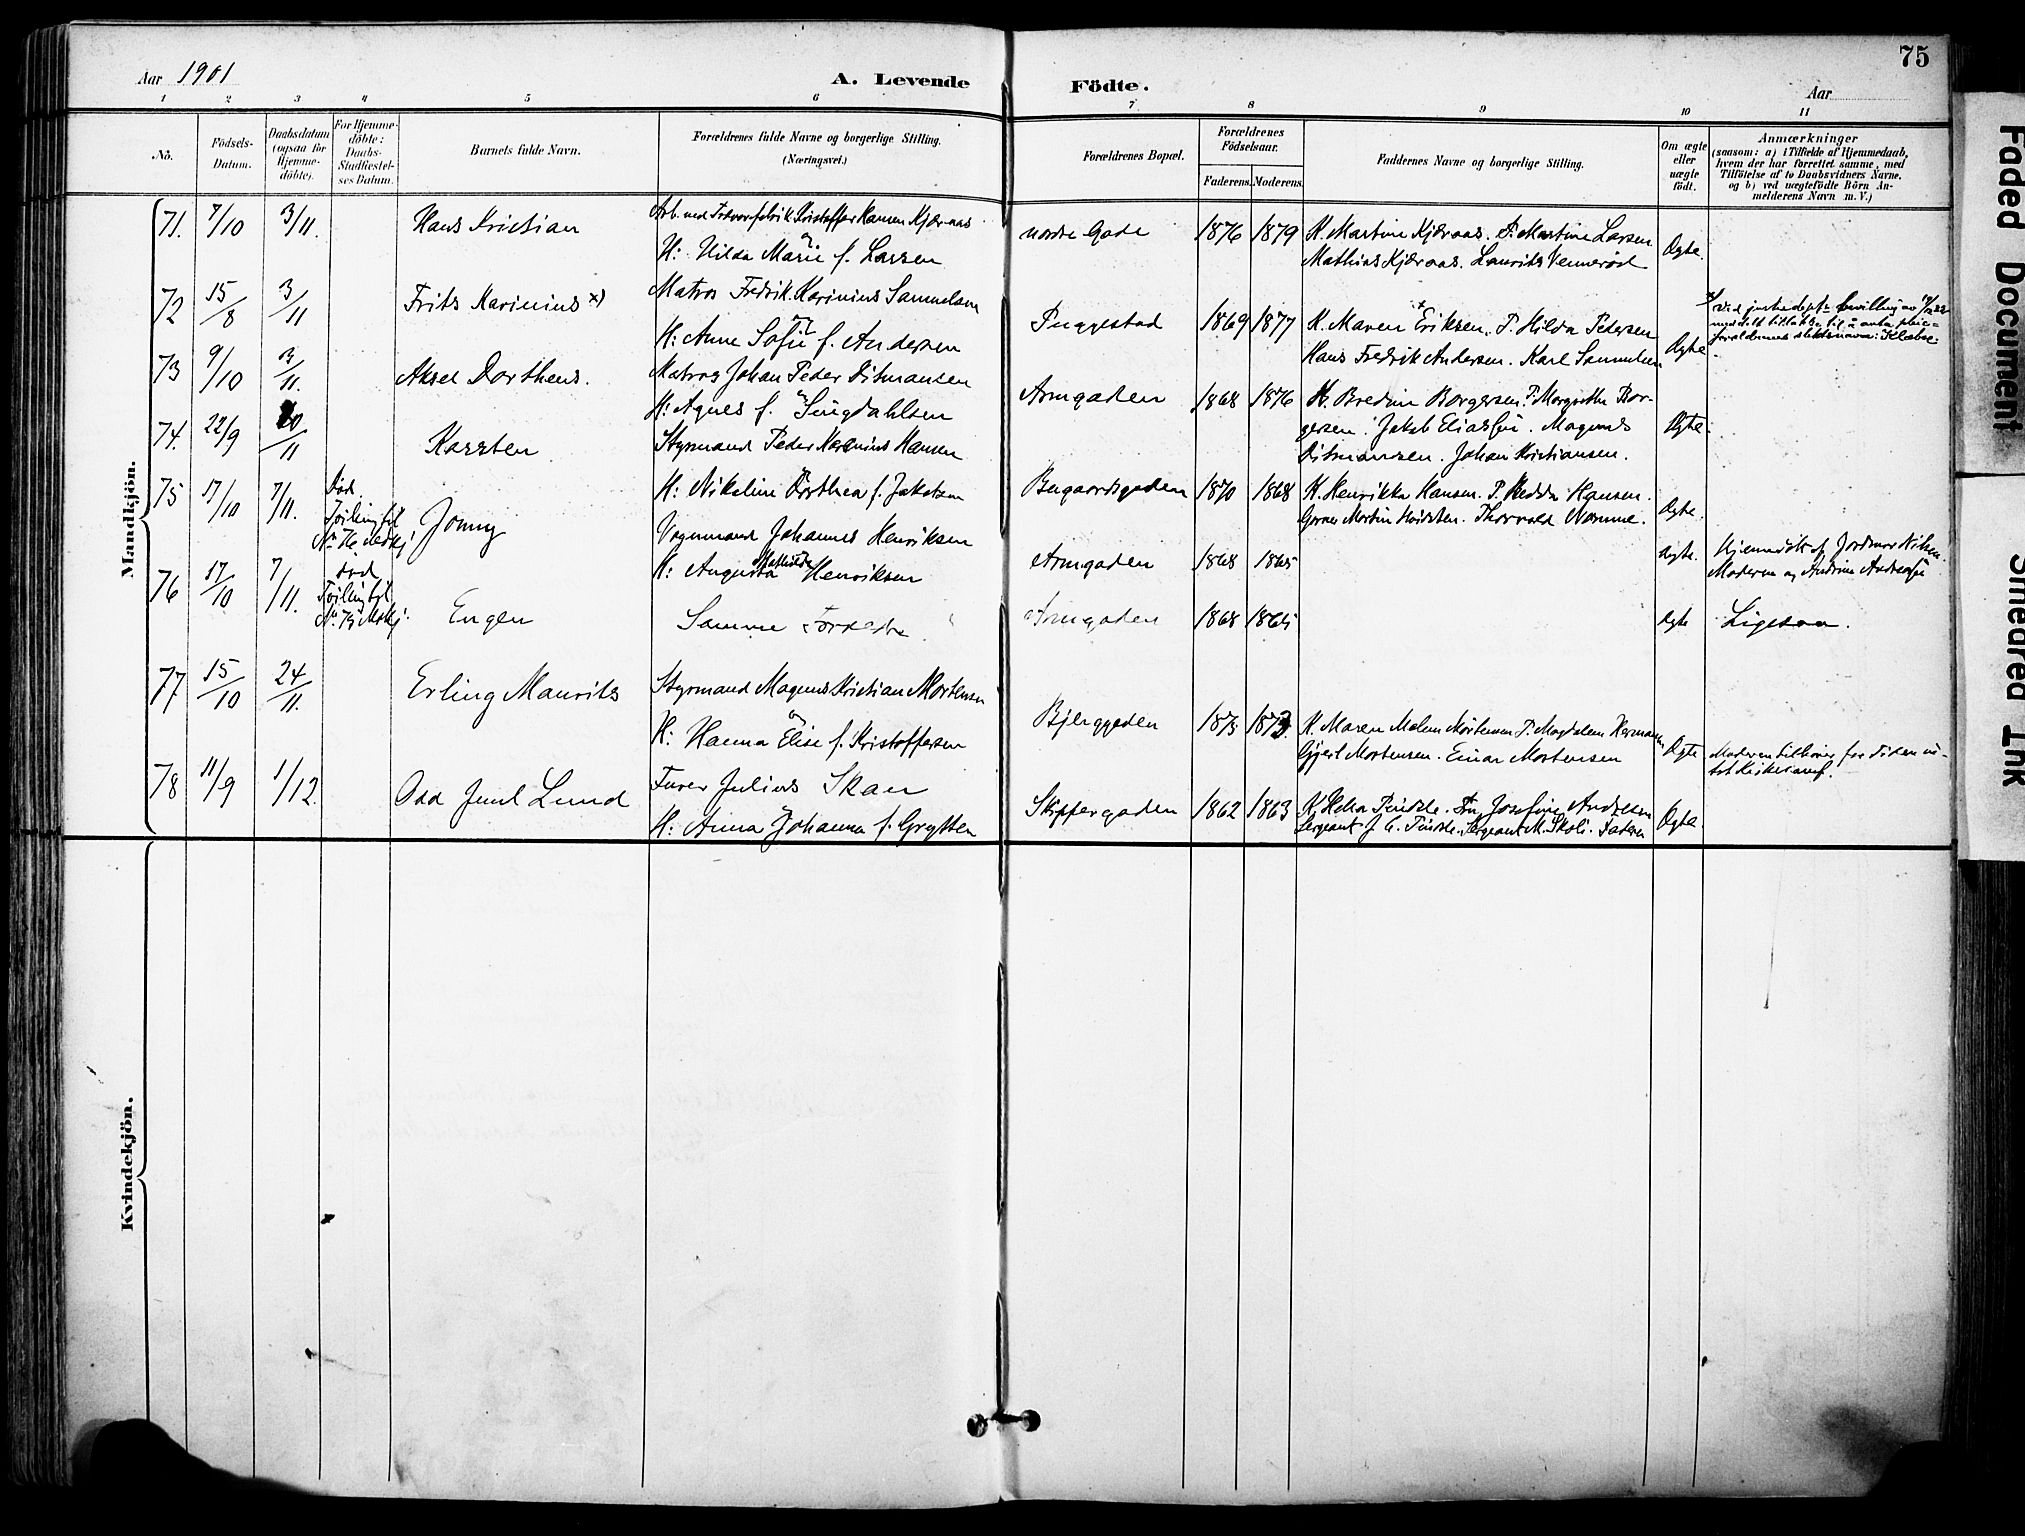 75
Aar 1901
A. Levende Födte.
Aar
1 2 3 4 5 6 7 8 9 10 11
No.
Födsels-Datum.
Daabsdatum (ogsaa för Hjemme-döbte).
For Hjemme-döbte: Daabs-Stadfæstel-ses Datum.
Barnets fulde Navn.
Forældrenes fulde Navne og borgerlige Stilling.
(Næringsvei.)
Forældrenes Bopæl.
Forældrenes Födselsaar.
Faderens. Moderens.
Faddernes Navne og borgerlige Stilling.
Om ægte eller uægte födt.
Anmærkninger
(saasom: a) i Tilfælde af Hjemmedaab,
hvem der har forrettet samme, med
Tilföielse af to Daabsvidners Navne,
og b) ved uægtefödte Börn An-
melderens Navn m. V.)
Mandkjön.
71. 7/10 3/11. Hans Kristian
Kristoffer Hansen Kjæraas
H: Hilda Marie f. Larsen
nordre Gade 1876 1879
K. Martine Kjæraas. P. Martine Larsen
Mathias Kjæraas. Laurits Vennerød
Ægte.
72 15/8 3/11 Frits Karinius x)
Matros Fredrik Karinius Samuelsen
H: Anne Sofie f. Andersen
Puggestad 1869 1877
K. Maren Eriksen. P. Hilda Petersen
Hans Fredrik Andersen. Karl Samuelsen
Ægte
73 9/10 3/11. Aksel Dortheus.
Matros Johan Peder Ditmansen
H: Agnes f. Singdahlsen
Armgaden 1868 1876
K. Bredine Borgersen. P. Margrethe Bor-
gersen. Jakob Eliassen. Magnus
Ditmansen. Johan Kristiansen.
Ægte.
74. 22/9 10/11 Karsten
Styrmand Peder Karenius Hansen
H: Nikoline Dorthea f. Jakobsen
Bugaardsgaden 1870 1868
K. Henrikka Hansen. P. Hedda Hansen.
Martin Thorvald
Ægte.
75 17/10 7/11. Död. Tvilling til No 76 Mandkj. Jonny
Vognmand Johannes Henriksen
H: Augusta Mathilde Henriksen
Armgaden 1868 1865
Ægte.
Hjemmedöbt af Jordmor Nilsen.
Moderen og Andrine
76 17/10 7/11. död Tvilling til No 75 Mdkj. Eugen
Samme Forældre
Armgaden 1868 1865
Ægte
Ligesaa.
77 15/10 24/11. Erling Maurits
Styrmand Magnus Kristian Mortensen
H: Hanna Elise f. Kristoffersen
Bjerggaden 1875 1873.
K. Maren Malene Mortensen P. Magdalene Hermansen
Gjert Mortensen. Einar Mortensen
Ægte
78 11/9 1/12. Odd Juul Lund
Furer Julius Skau
H: Anna Johanna f. Grytten
Skippergaden 1862 1863
Josefine Andresen
Sergeant Sergeant M. Faderen
Ægte.
Kvindekjön.
Faded Document
Smeared Ink